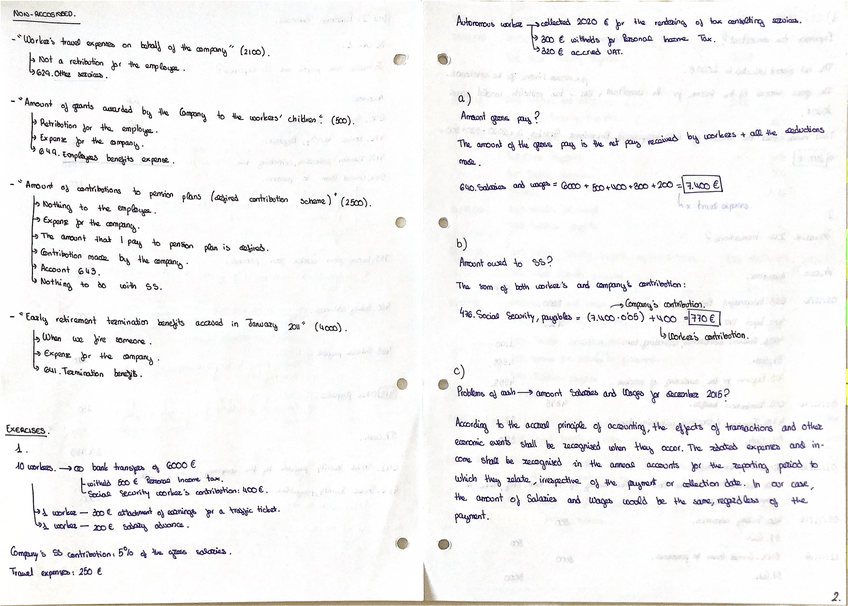 NON-RECORDED.
- "Worker's travel expenses on behalf of the company" (2100)
↳ Not a retribution for the employee.
↳ 629. Other services.
- "Amount of grants awarded by the Company to the workers' children" (500).
↳ Retribution for the employee.
↳ Expense for the company.
↳ 649. Employees benefits expense.
- "Amount of contributions to pension plans (defined contribution scheme)" (2500).
↳ Nothing to the employee.
↳ Expense for the company.
↳ The amount that I pay to pension plan is defined.
↳ Contribution made by the company.
↳ Account 643.
↳ Nothing to do with SS.
- "Early retirement termination benefits accrued in January 2011" (4000).
↳ When we fire someone.
↳ Expense for the company.
↳ 641. Termination benefits.
EXERCISES.
1.
10 workers. → bank transfers of 6000 €
withheld 500 € Personal Income tax.
Social Security worker's contribution: 400 €.
↳ 1 worker — 300 € attachment of earnings for a traffic ticket.
↳ 1 worker — 200 € salary advance.
Company's SS contribution: 5% of the gross salaries.
Travel expenses: 250 €
Autonomous worker → collected 2020 € for the rendering of tax consulting services.
↳ 300 € withholds for Personal Income Tax.
↳ 320 € accrued VAT.
a)
Amount gross pay?
The amount of the gross pay is the net pay received by workers + all the deductions
made.
640. Salaries and wages = 6000 + 500 + 400 + 300 + 200 = 7.400 €
b)
Amount owed to SS?
The sum of both worker's and company's contribution:
→ Company's contribution.
476. Social Security, payables = (7.400 · 0'05) + 400 = 770 €
↳ Worker's contribution.
c)
Problems of cash → amount Salaries and Wages for december 2015?
According to the accrual principle of accounting, the effects of transactions and other
economic events shall be recognised when they occur. The related expenses and in-
come shall be recognised in the annual accounts for the reporting period to
which they relate, irrespective of the payment or collection date. In our case,
the amount of Salaries and Wages would be the same, regardless of the
payment.
2.